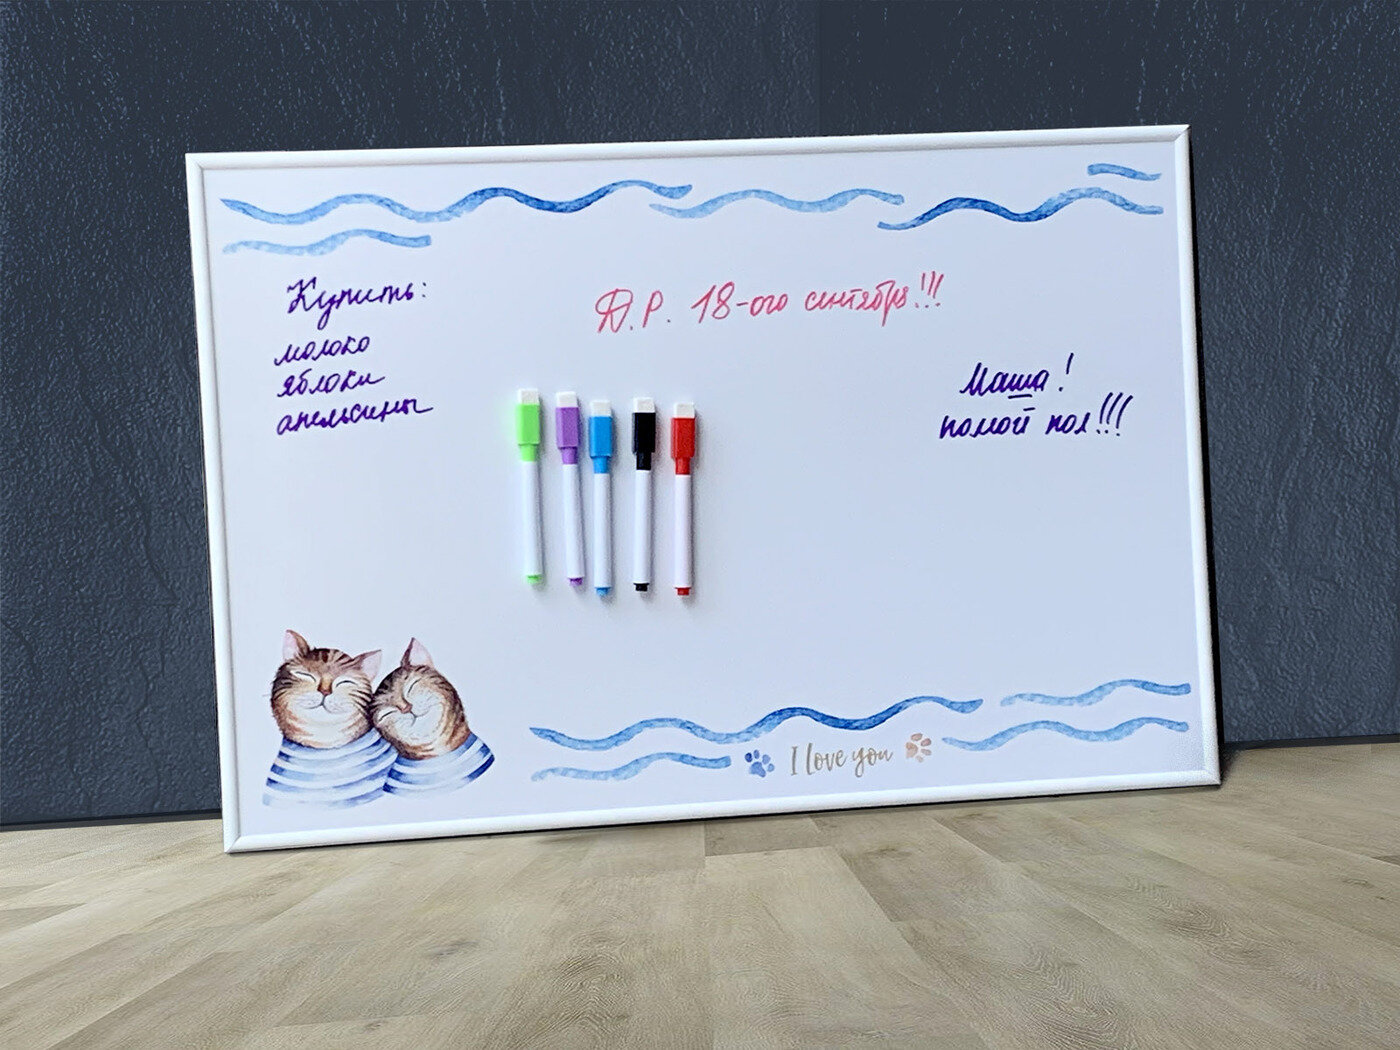 Купить:
молоко
яблоки
апельсины
Д.Р. 18-ого сентября!!!
Маша!
помой пол!!!
I love you